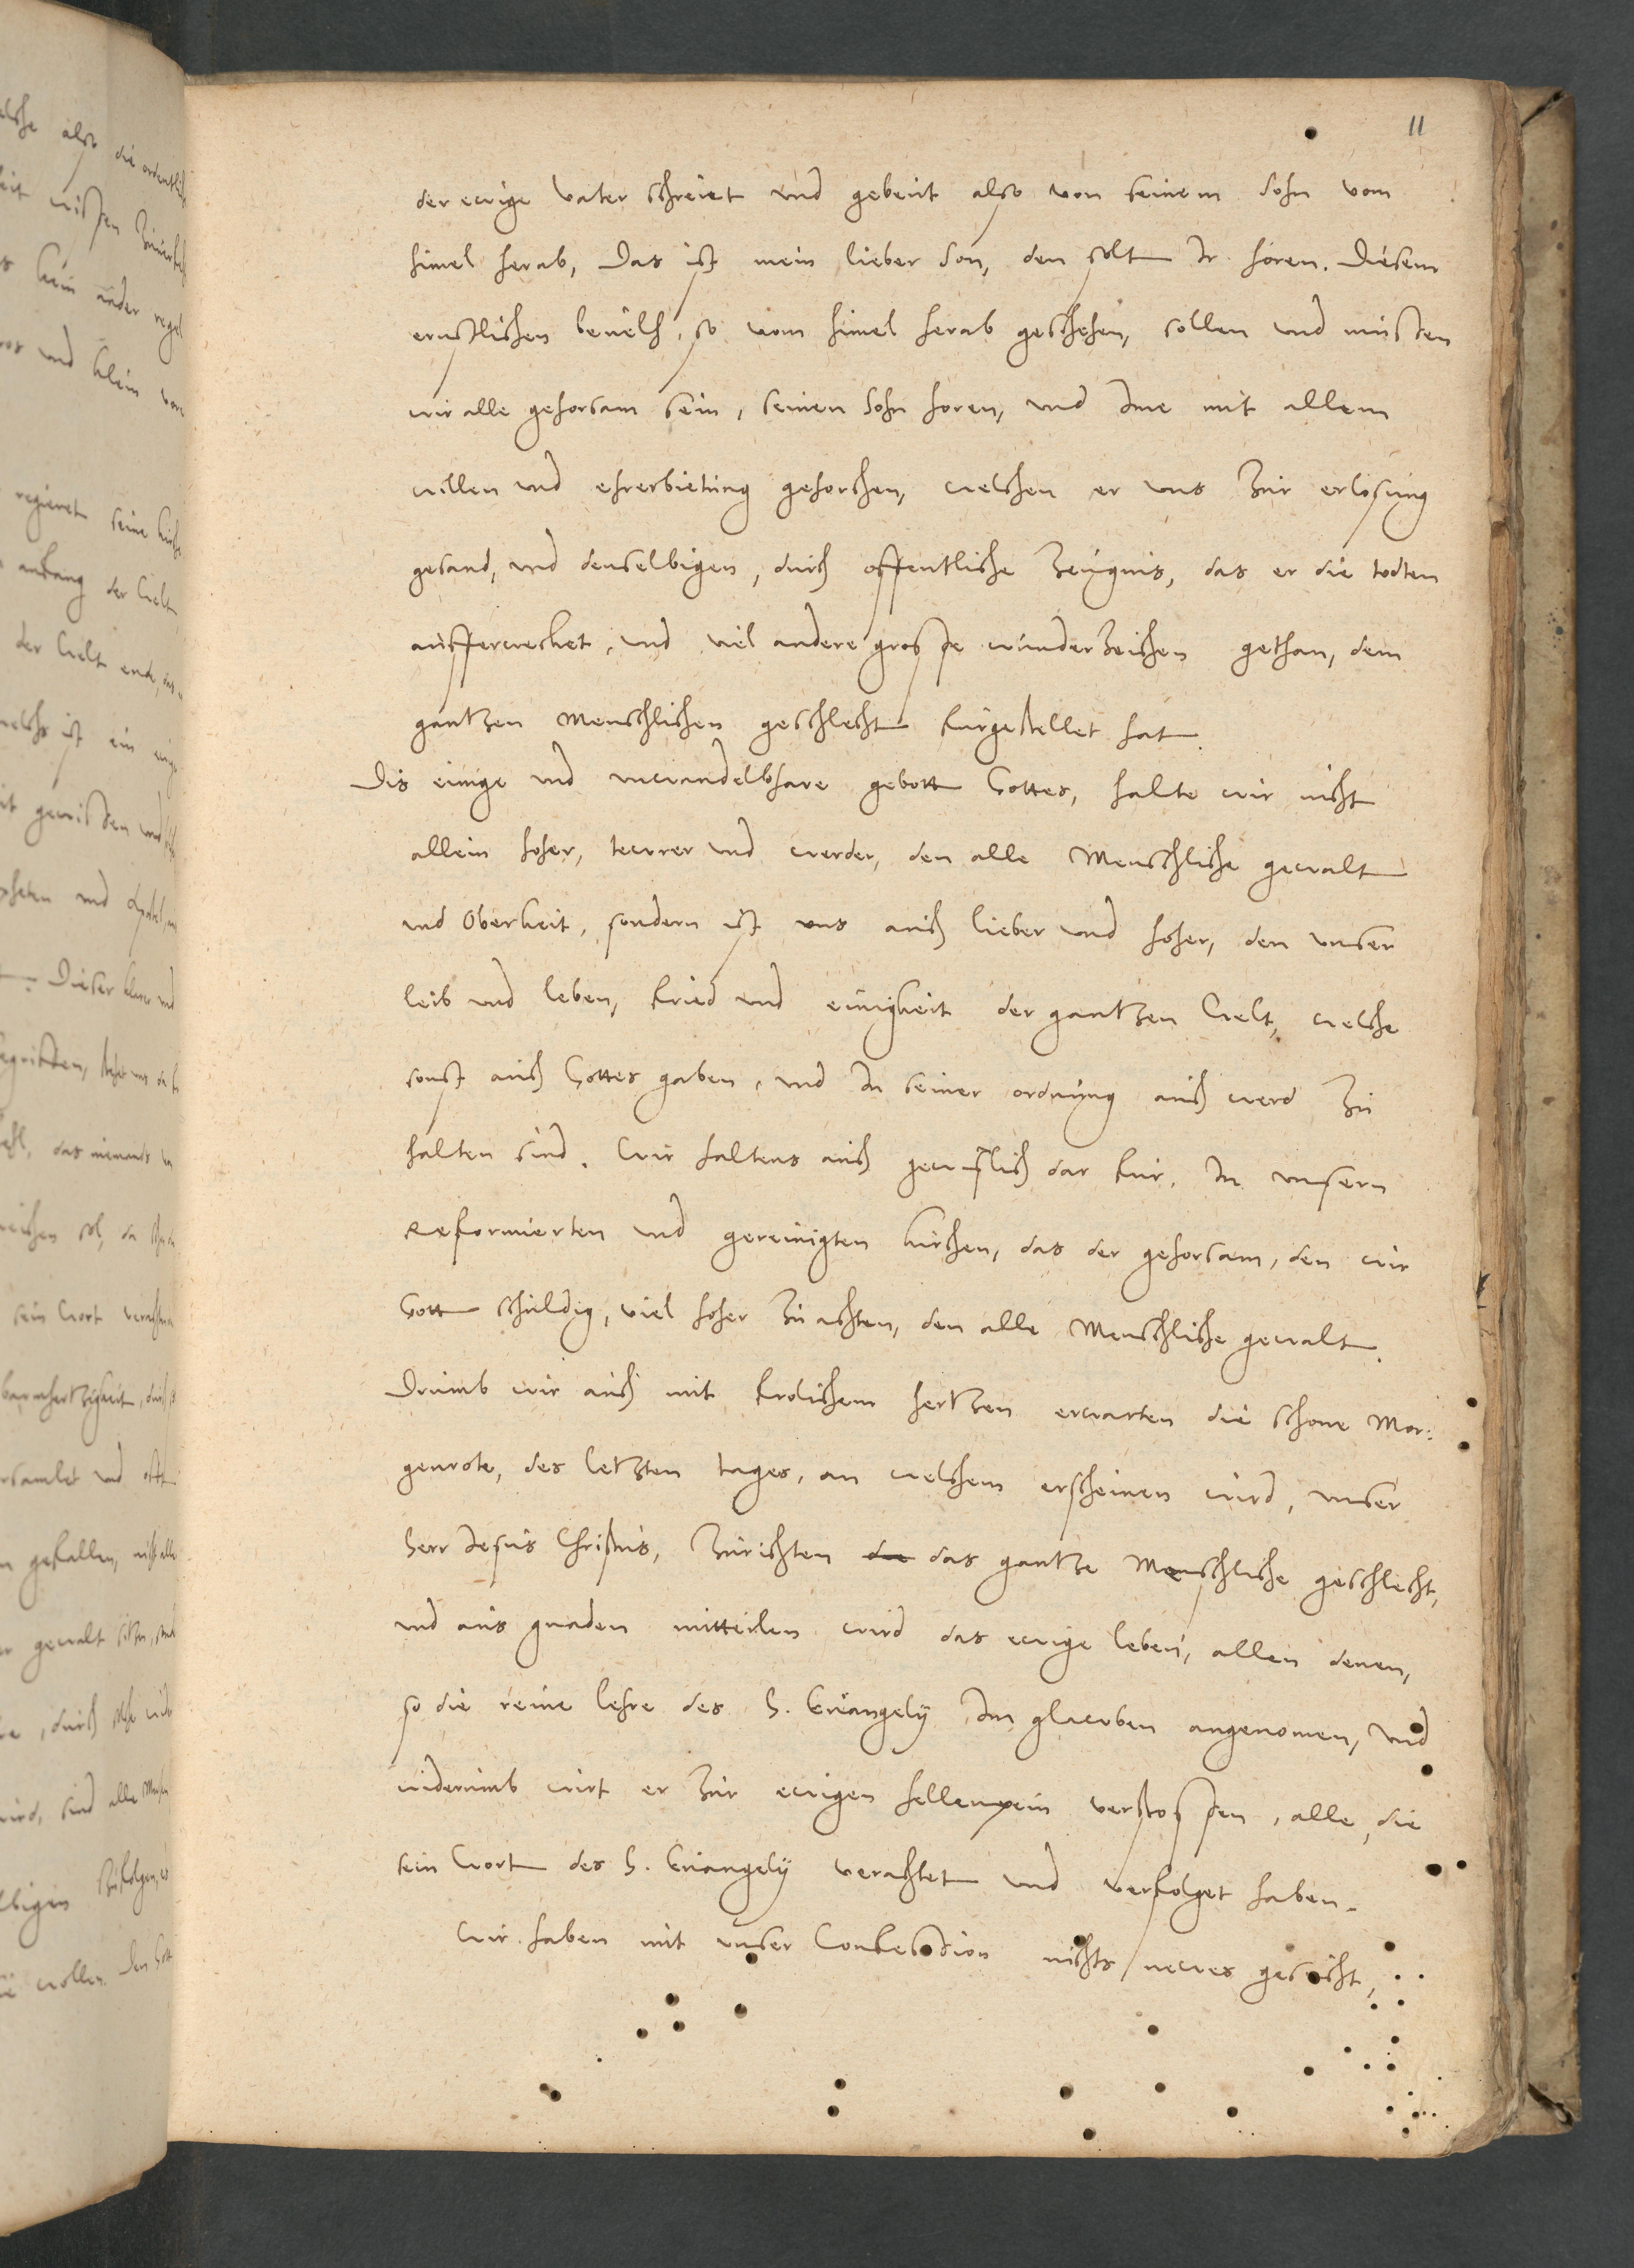 11
der ewige vater schreiet vnd gebeut also von seinem Sohn vom
himel herab, Das ist mein lieber Son, den solt Ir horen. Diesem
ernstlichen beuelh, so vom himel herab geschehen, sollen vnd mussen
wir alle gehorsam sein, seinen Sohn horen, vnd Ime mit allem
willen vnd ehrerbietung gehorchen, welchen er vns zur erlosung
gesand, vnd denselbigen, durch offentliche zeugnis, das er die todten
aufferwecket, vnd viel andere grosse wunderzeichen gethan, dem
gantzen Menschlichen geschlecht furgestellet hat.
Dis einige vnd vnwandelbhare gebott Gottes, halte wir nicht
allein hoher, tewrer vnd werder, den alle Menschliche gewalt
vnd Oberkeit, sondern ist vns auch lieber vnd hoher, den vnser
leib vnd leben, fried vnd einigkeit der gantzen Welt, welche
sonst auch Gottes gaben, vnd In seiner ordnung auch werd zu
halten sind. Wir haltens auch gewislich dar fur, In vnsern
Reformierten vnd gereinigten kirchen, das der gehorsam, den wir
Gott schuldig, viel hoher zu achten, den alle Menschliche gewalt.
Drumb wir auch mit frolichem hertzen erwarten die schone Mor:
genrote, des letzten tages, an welchem erscheinen wird, vnser
Herr Jesus Christus, zurichten die das gantze Menschliche geschlecht,
vnd aus gnaden mitteilen wird das ewige leben, allen denen,
so die reine lehre des H. Euangely Im glawben angenomen, vnd
widerumb wirt er zur ewigen hellenpein verstossen, alle, die
sein Wort des H. Euangely verachtet vnd verfolget haben.
Wir haben mit vnser Confession nichts newes gesucht,